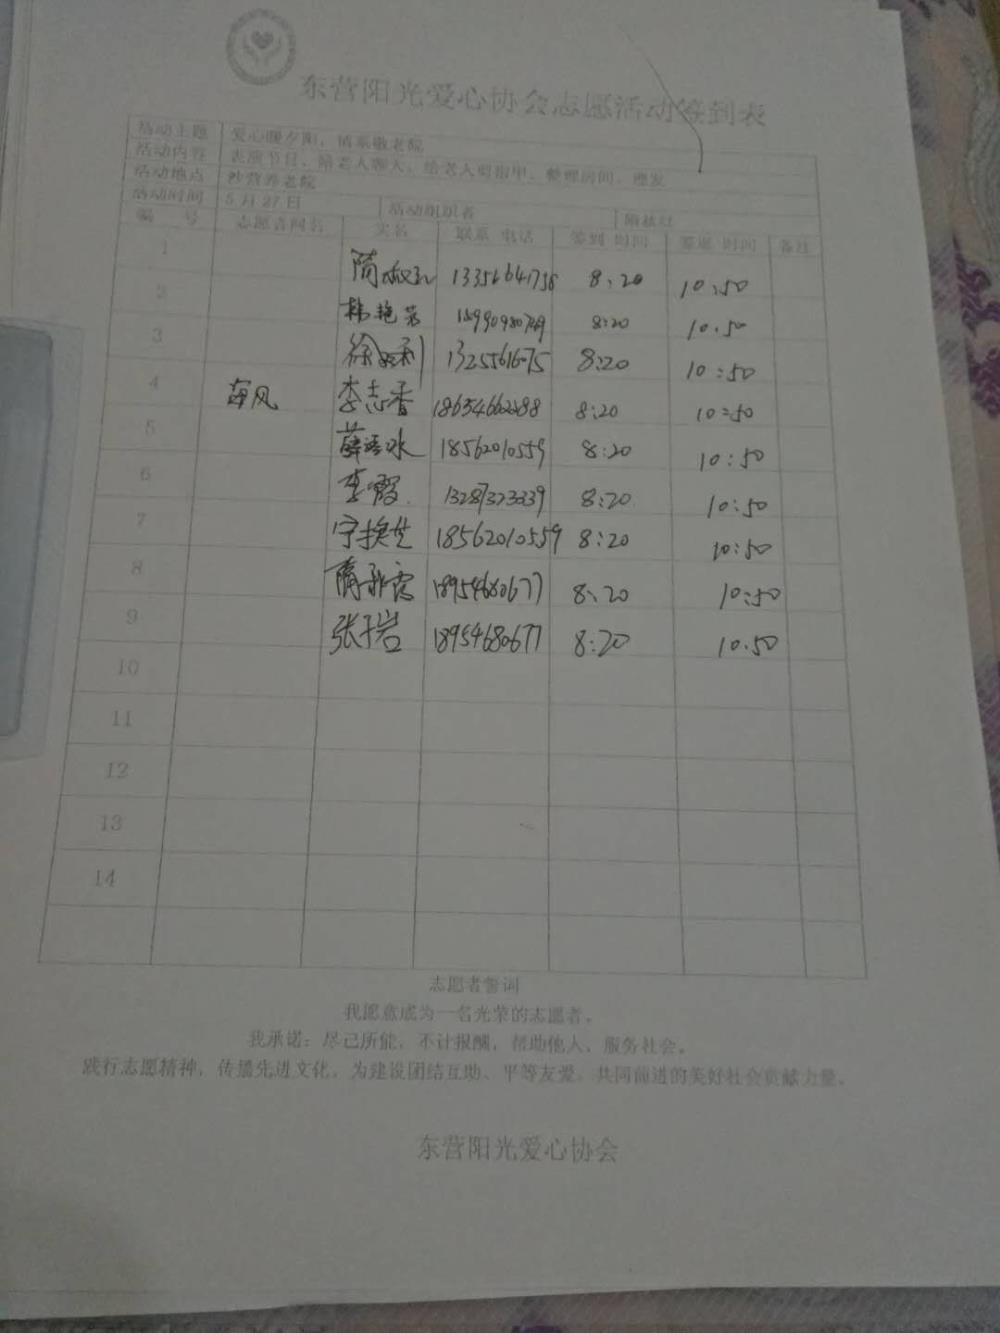 东营阳光爱心协会志愿活动签到表
活动主题 爱心暖夕阳，情系敬老院
活动内容 表演节目、陪老人聊天、给老人剪指甲、整理房间、理发
活动地点 养老院
活动时间 5月27日 活动组织者
编 号 志愿者网名 实名 联系 电话 签到 时间 签退 时间 备注
1 8:20 10:50
2 韩艳 8:20 10.50
3 徐 8:20 10:50
4 海风 李志香 8:20 10:50
5 薛 冰 18562010559 8:20 10:50
6 李霞 8:20 10:50
7 宁换芝 18562010559 8:20 10:50
8 隋 18954680677 8:20 10:50
9 张子岩 18954680677 8:20 10.50
10
11
12
13
14
志愿者誓词
我愿意成为一名光荣的志愿者。
我承诺：尽己所能，不计报酬，帮助他人，服务社会。
践行志愿精神，传播先进文化，为建设团结互助、平等友爱、共同前进的美好社会贡献力量。
东营阳光爱心协会